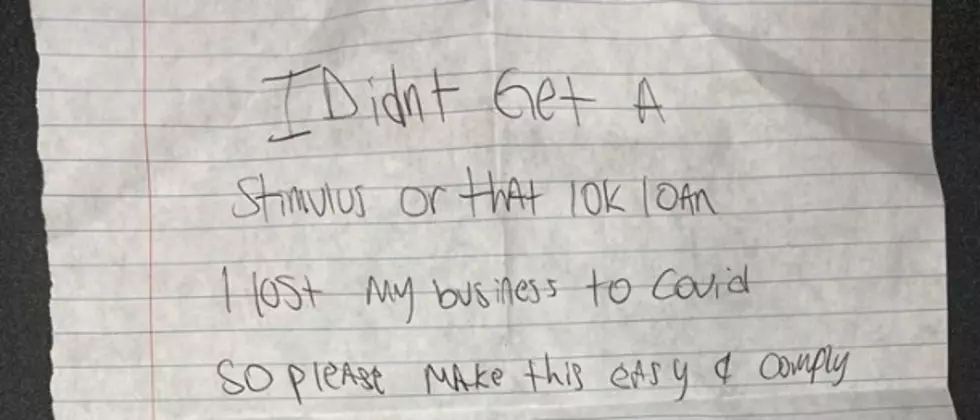 I Didnt Get A
Stimulus or that 10K loan
I lost My business to Covid
So please make this easy & comply